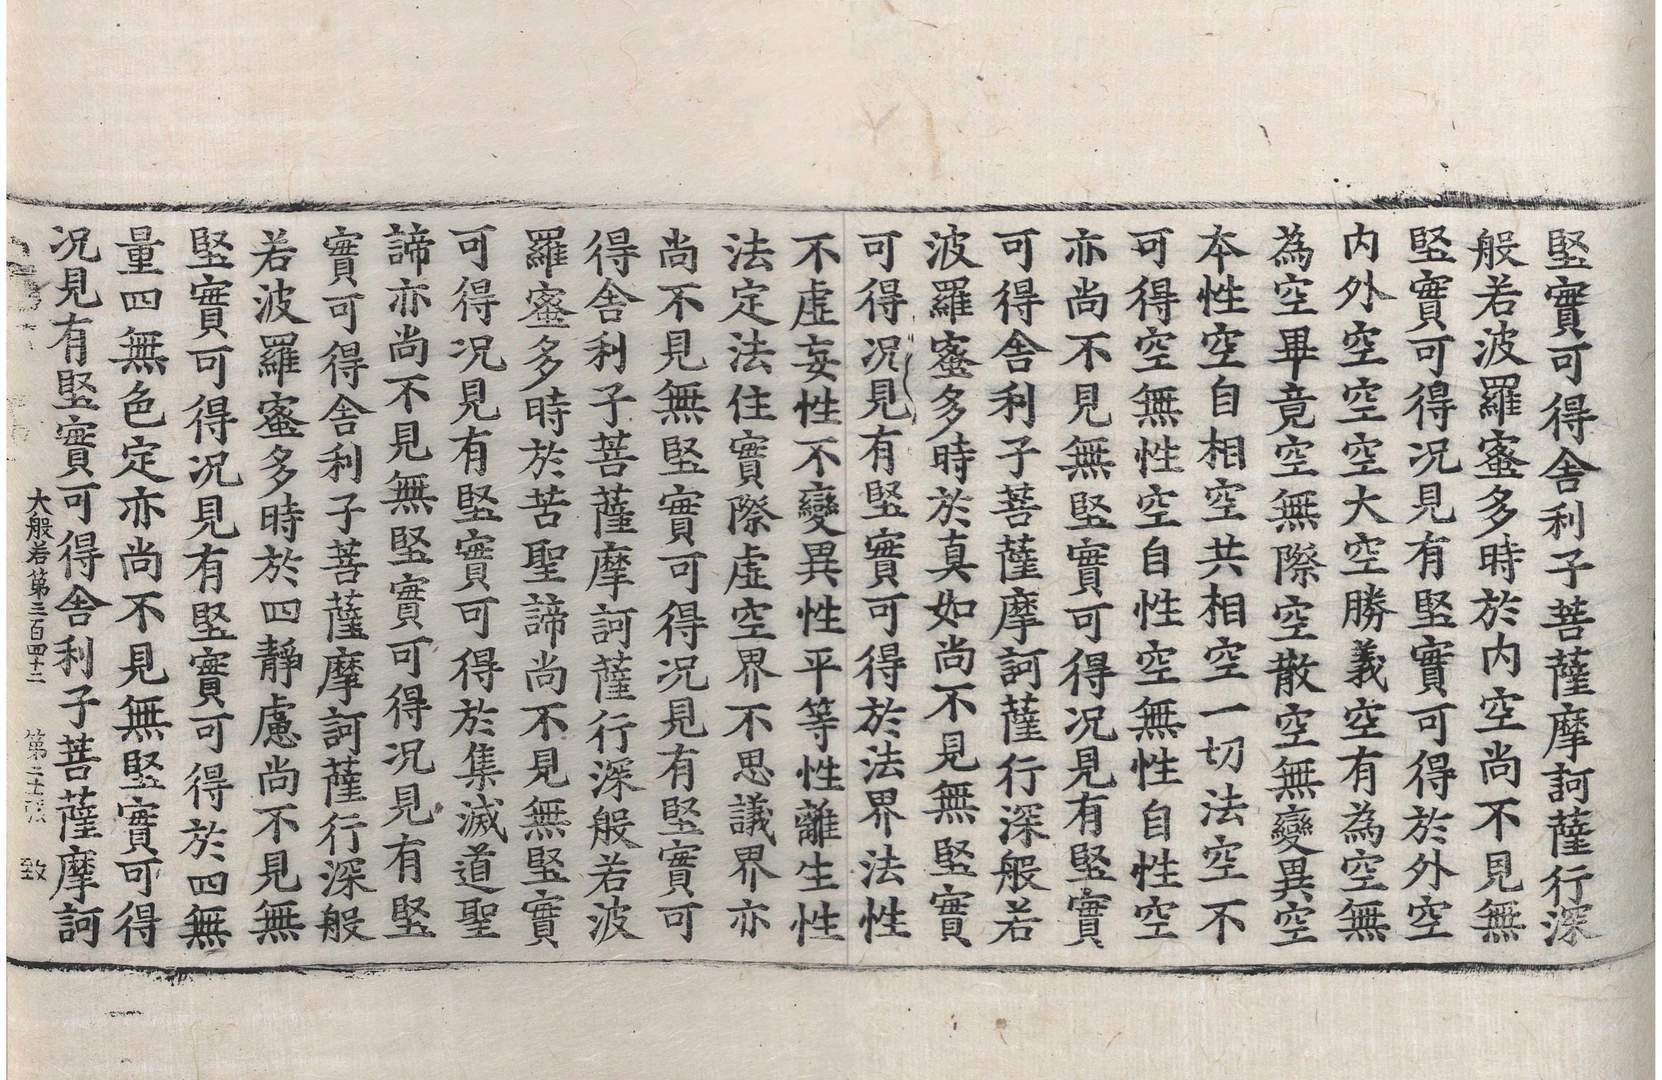 堅實可得舍利子菩薩摩訶薩行深
般若波羅蜜多時於内空尚不見無
堅實可得况見有堅實可得於外空
内外空空空大空勝義空有為空無
為空畢竟空無際空散空無變異空
本性空自相空共相空一切法空不
可得空無性空自性空無性自性空
亦尚不見無堅實可得况見有堅實
可得舍利子菩薩摩訶薩行深般若
波羅蜜多時於真如尚不見無堅實
可得况見有堅實可得於法界法性
不虛妄性不變異性平等性離生性
法定法住實際虛空界不思議界亦
尚不見無堅實可得况見有堅實可
得舍利子菩薩摩訶薩行深般若波
羅蜜多時於苦聖諦尚不見無堅實
可得况見有堅實可得於集滅道聖
諦亦尚不見無堅實可得况見有堅
實可得舍利子菩薩摩訶薩行深般
若波羅蜜多時於四靜慮尚不見無
堅實可得况見有堅實可得於四無
量四無色定亦尚不見無堅實可得
况見有堅實可得舍利子菩薩摩訶
大般若第三百四十二 第二十張 致